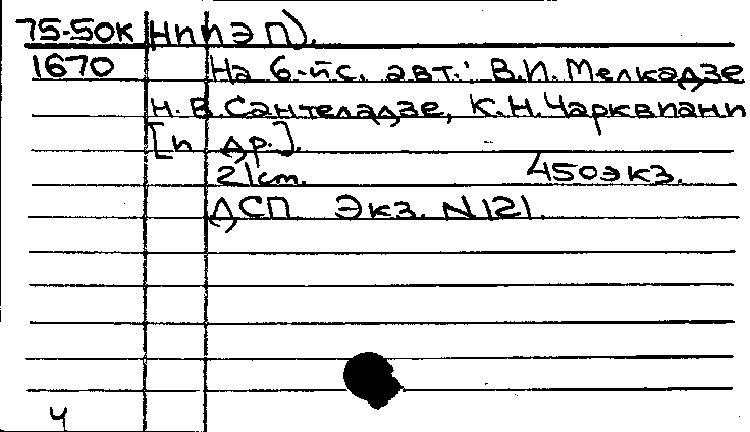 75-50к НИИЭП).
1670 На 6-й с. авт.: В.И. Мелкадзе
Н. В. Сантеладзе, К. Н. Чарквиани
[и др.].
21 см. 450 экз.
ДСП. Экз. N 121.
4